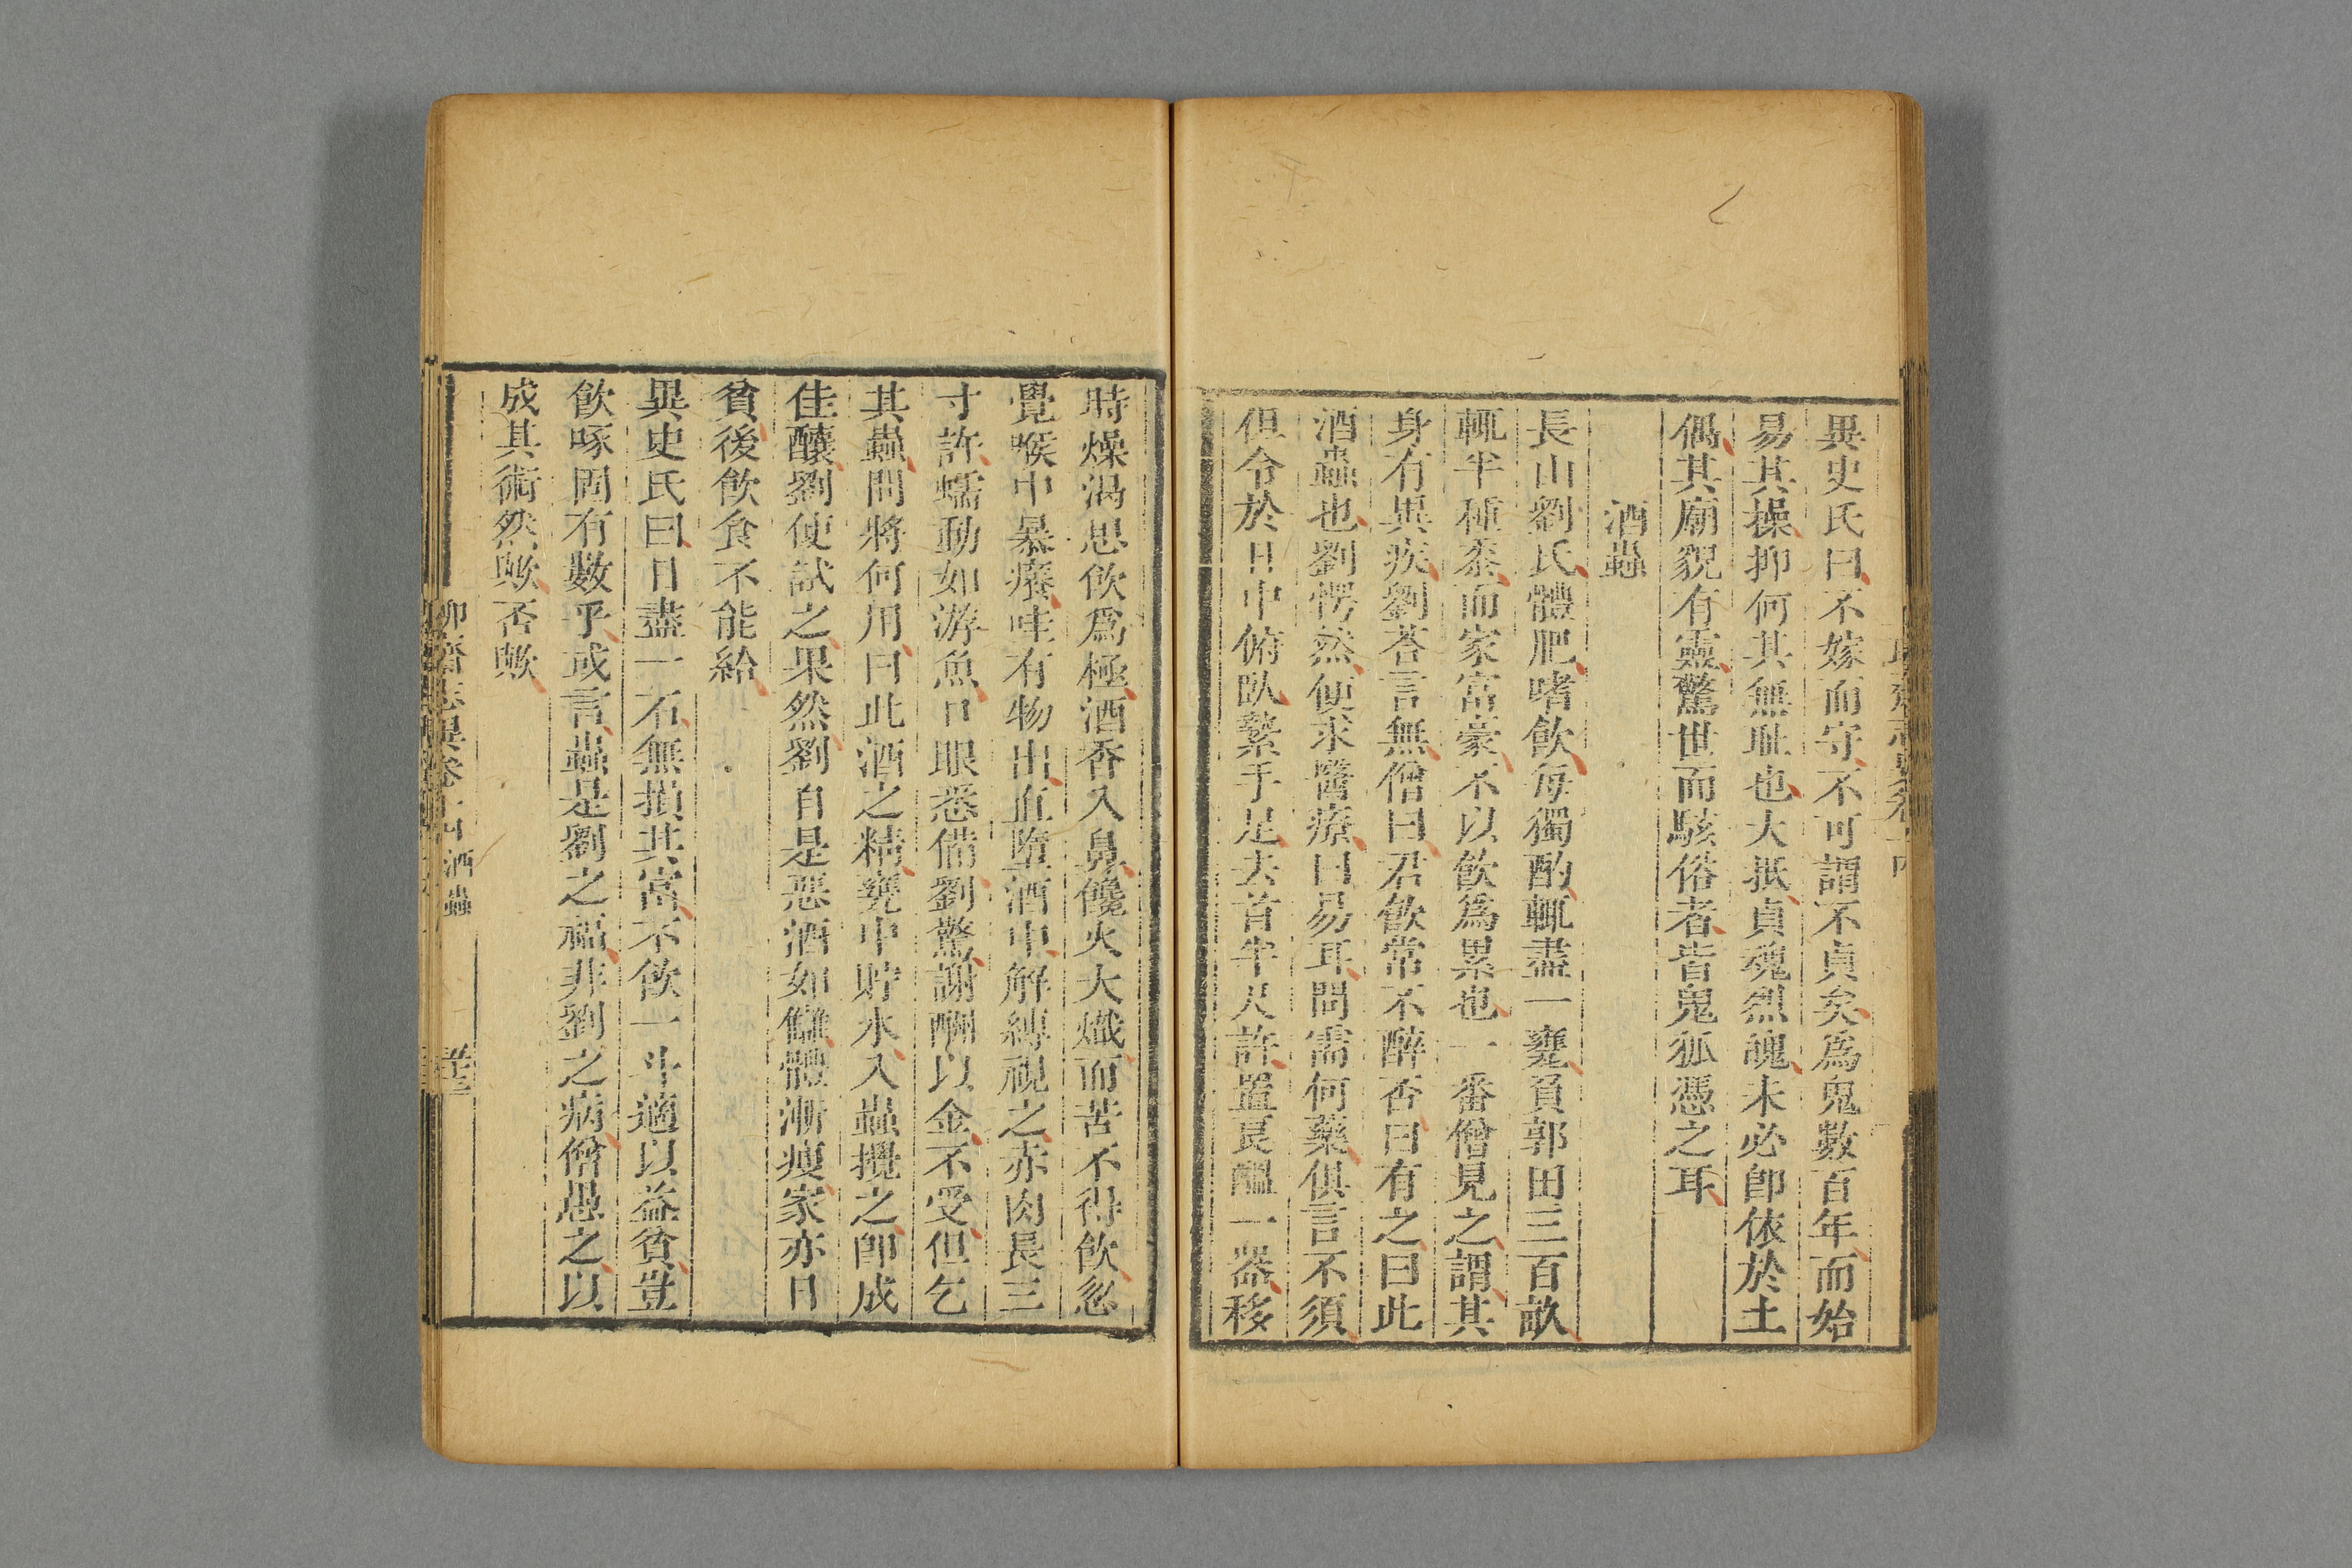 異史氏曰不嫁而守不可謂不貞矣爲鬼數百年而始
易其操抑何其無耻也大抵貞魂烈魄未必卽依於土
偶其廟貌有靈驚世而駭俗者皆鬼狐憑之耳
酒蟲
長山劉氏體肥嗜飲每獨酌輒盡一甕負郭田三百畝
輒半種黍而家富豪不以飲爲累也一番僧見之謂其
身有異疾劉荅言無僧曰君飲常不醉否曰有之曰此
酒蟲也劉愕然便求醫療曰易耳問需何藥俱言不須
但令於日中俯臥縶手足去首半尺許置良醞一器移
時燥渴思飲爲極酒香入鼻饞火大熾而苦不得飲忽
覺喉中暴癢哇有物出直墮酒中解縛視之赤肉長三
寸許蠕動如游魚口眼悉備劉驚謝酬以金不受但乞
其蟲問將何用曰此酒之精甕中貯水入蟲攪之卽成
佳釀劉使試之果然劉自是惡酒如讎體漸瘦家亦日
貧後飲食不能給
異史氏曰日盡一石無損其富不飲一斗適以益貧豈
飲啄固有數乎或言蟲是劉之福非劉之病僧愚之以
成其術然歟否歟
聊齋志異卷十四 酒蟲